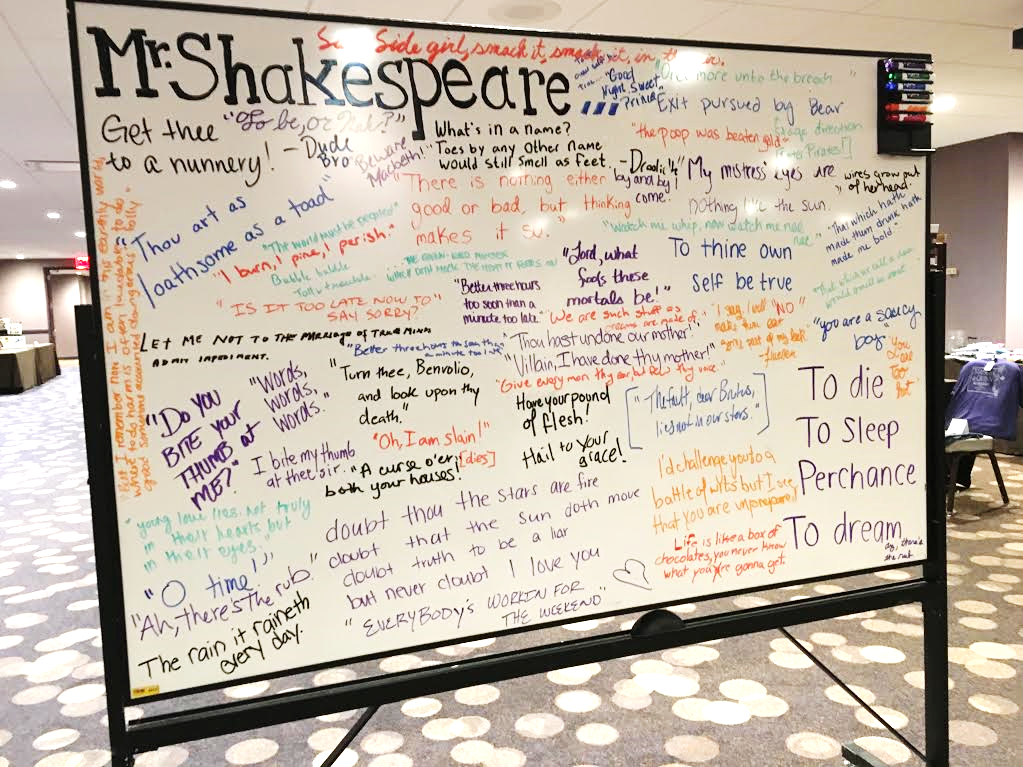 Mr. Shakespeare
Side girl, smack it,
"Good
Night, Sweet
Prince"
more unto the breach
Exit pursued by Bear
Stage direction
Get thee
to a nunnery!
"To be, or Nah?"
- Dude
Bro
Beware
Macbeth!
What's in a name?
Toes by any other Name
would still smell as feet.
"the poop was beaten gold"
by and by
I come!
"My mistress' eyes are
nothing like the sun.
wires grow out
of her head.
"Watch me whip, now watch me nae
nae"
"There is nothing either
good or bad, but thinking
makes it so."
"Thou art as
loathsome as a toad"
"The world must be peopled"
"I burn, I pine, I perish."
Bubble bubble
"IS IT TOO LATE NOW TO
SAY SORRY?"
But I remember now I am in this earthly world
where to do harm is often laudable, to do
good sometime accounted dangerous folly
"Better three hours
too soon than a
minute too late"
"Lord, what
fools these
mortals be!"
To thine own
self be true
"That which hath
made them drunk hath
made me bold."
"We are such stuff as
dreams are made of."
"NO"
"you are a saucy
boy"
You
are
too
hot
LET ME NOT TO THE MARRIAGE OF TRUE MINDS
ADMIT IMPEDIMENT.
"Better three hours too soon than
a minute too late"
"Thou hast undone our mother!"
"Villain, I have done thy mother!"
"Give every man thy ear but few thy voice."
"Do you
BITE YOUR
THUMB AT
ME?"
"Words,
words,
words."
"Turn thee, Benvolio,
and look upon thy
death."
Have your pound
of flesh!
["The fault, dear Brutus,
lies not in our stars."]
To die
To Sleep
Perchance
To dream
ay, there's
the rub
I bite my thumb
at thee sir.
"Oh, I am slain!"
[dies]
"A curse o'er
both your houses!"
Hail to your
grace!
I'd challenge you to a
battle of wits but I see
that you are unprepared
"young love lies not truly
in their hearts but
in their eyes."
doubt thou the stars are fire
doubt that the sun doth move
doubt truth to be a liar
but never doubt I love you
Life is like a box of
chocolates, you never know
what you're gonna get.
"O time!"
"Ah, there's the rub."
"EVERYBODY'S WORKIN FOR
THE WEEKEND"
The rain, it raineth
every day.